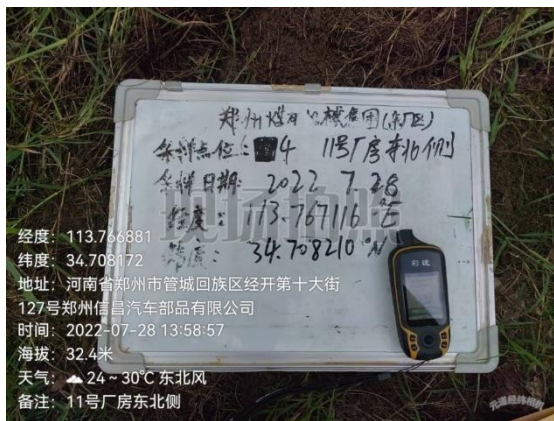 郑州煤矿机械集团(东厂区)
采样点位: 4 11号厂房东北侧
采样日期: 2022 7.28
经度: 113.767116°E
纬度: 34.708210°N
现场拍照
彩途
经度: 113.766881
纬度: 34.708172
地址: 河南省郑州市管城回族区经开第十大街
127号郑州信昌汽车部品有限公司
时间: 2022-07-28 13:58:57
海拔: 32.4米
天气: 24 ~ 30℃ 东北风
备注: 11号厂房东北侧
元道经纬相机